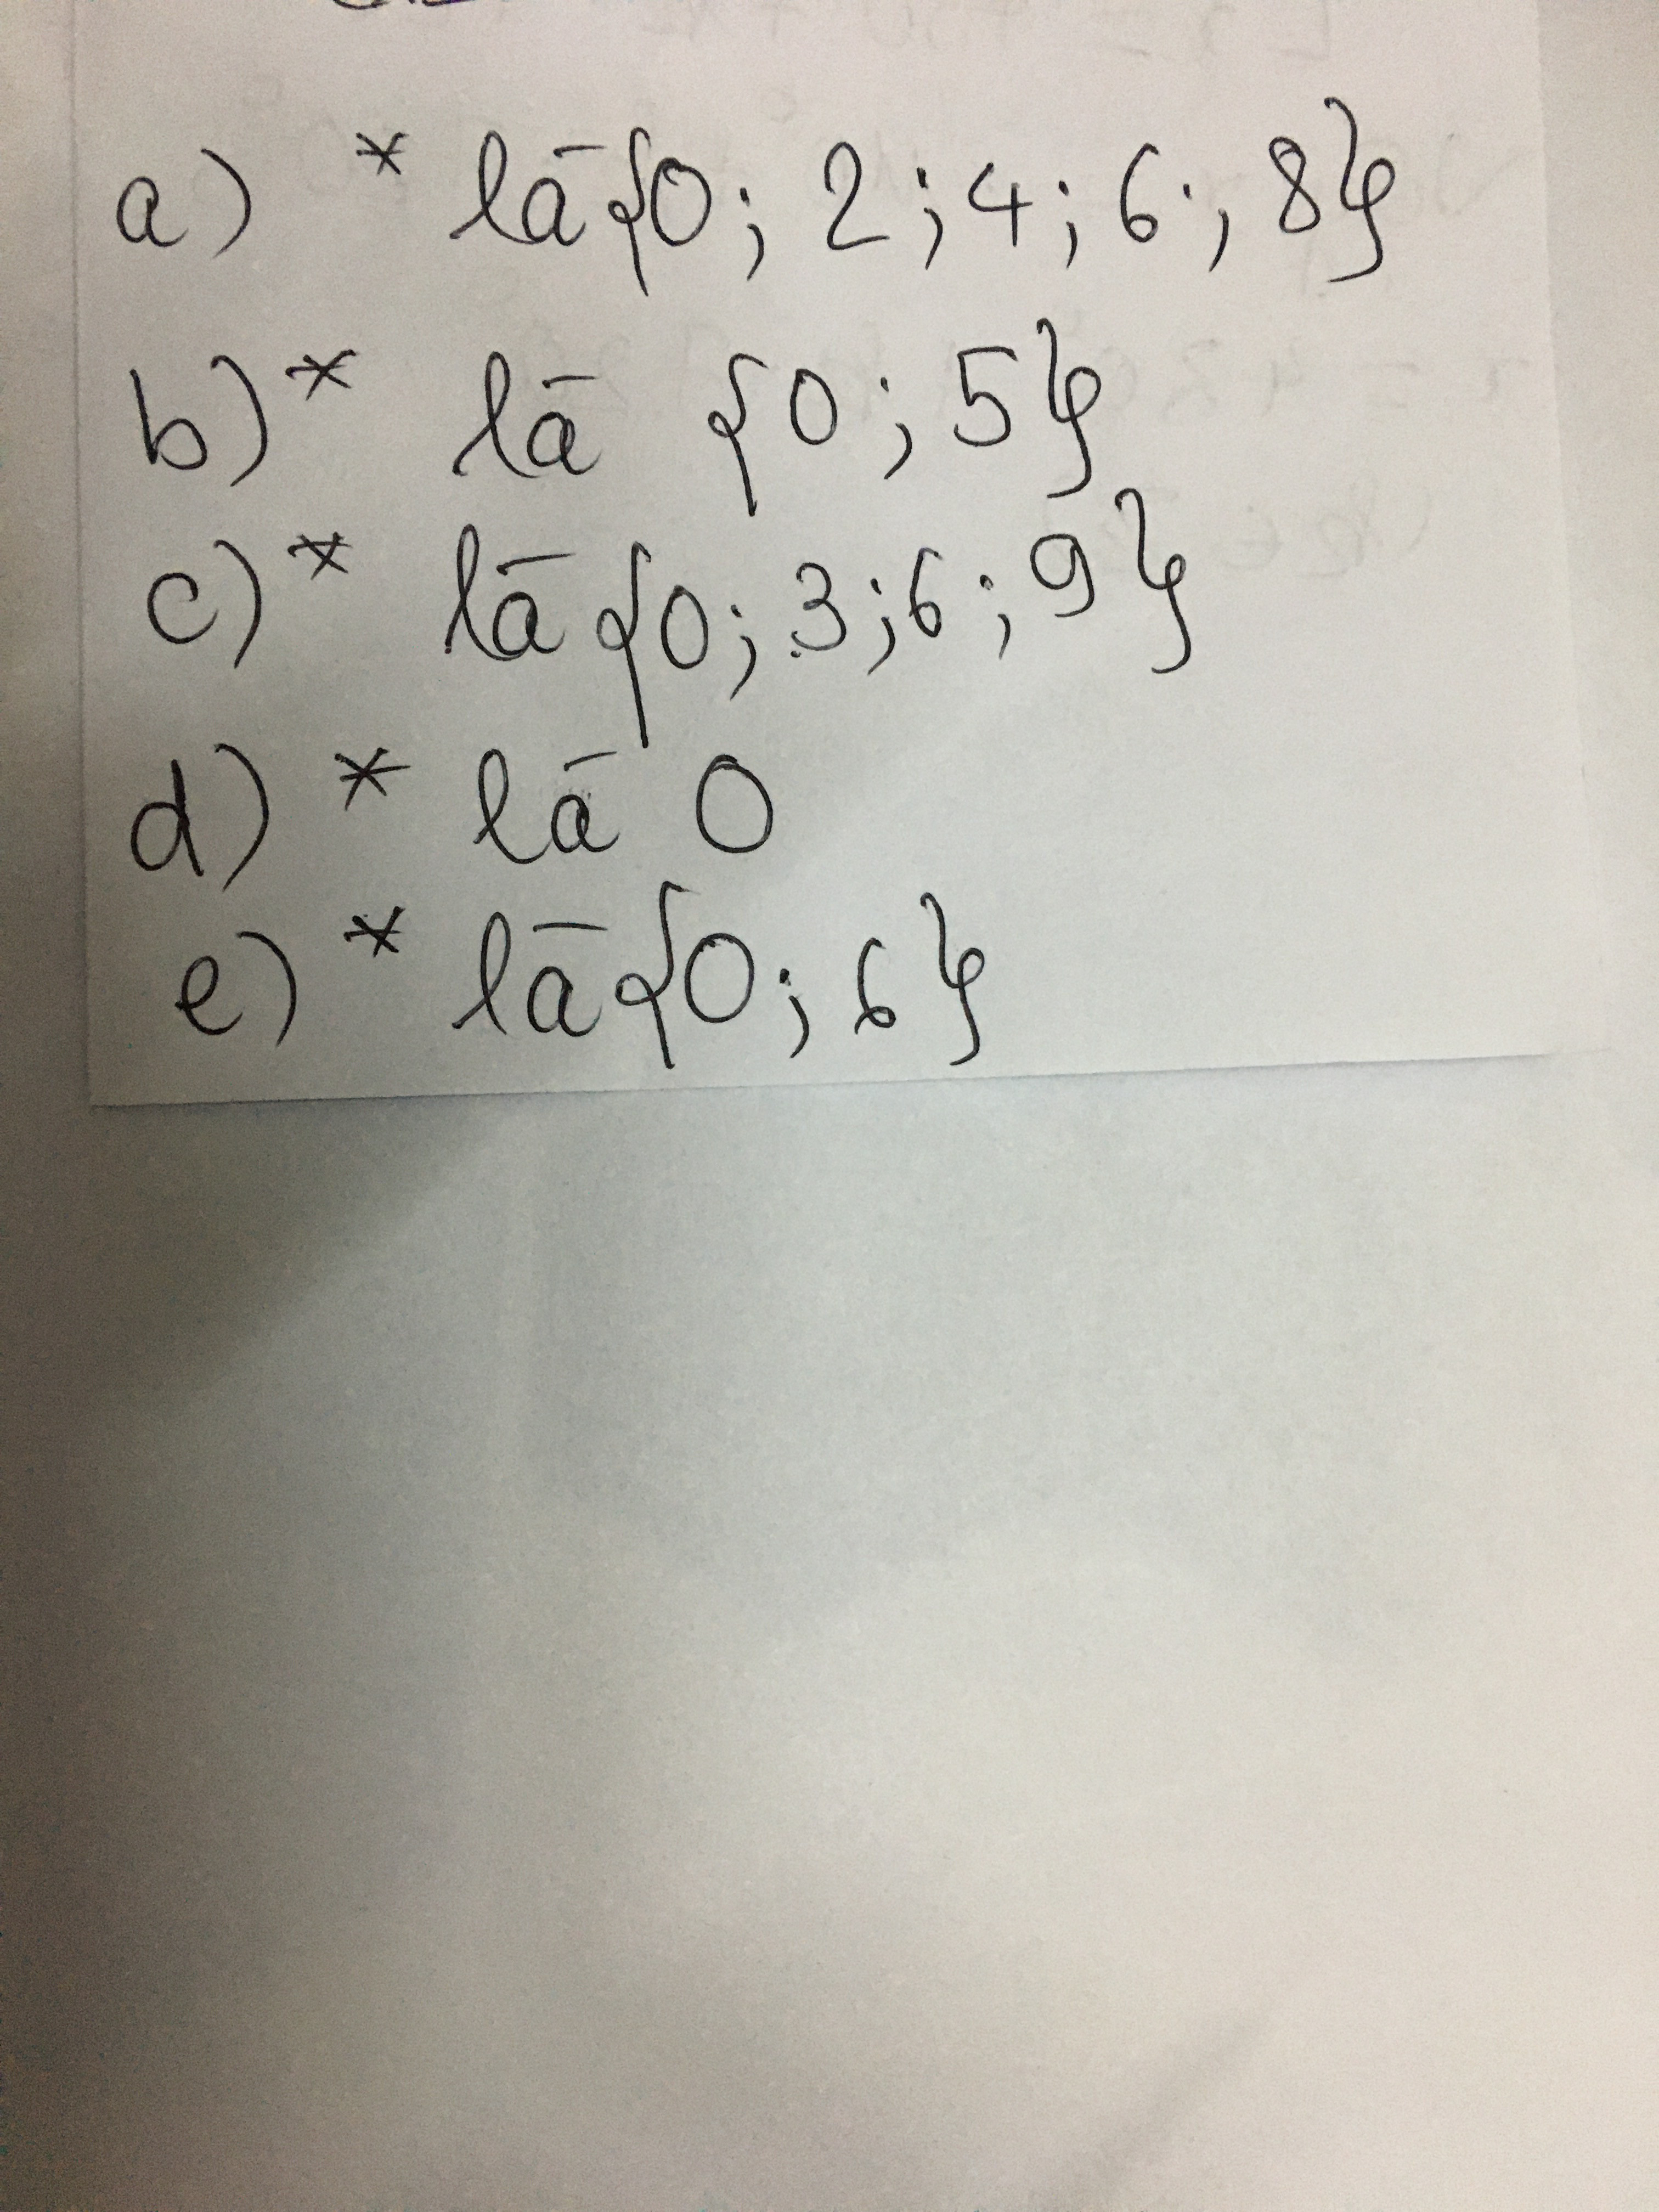 a) * là {0; 2; 4; 6; 8}
b) * là {0; 5}
c) * là {0; 3; 6; 9}
d) * là 0
e) * là {0; 6}